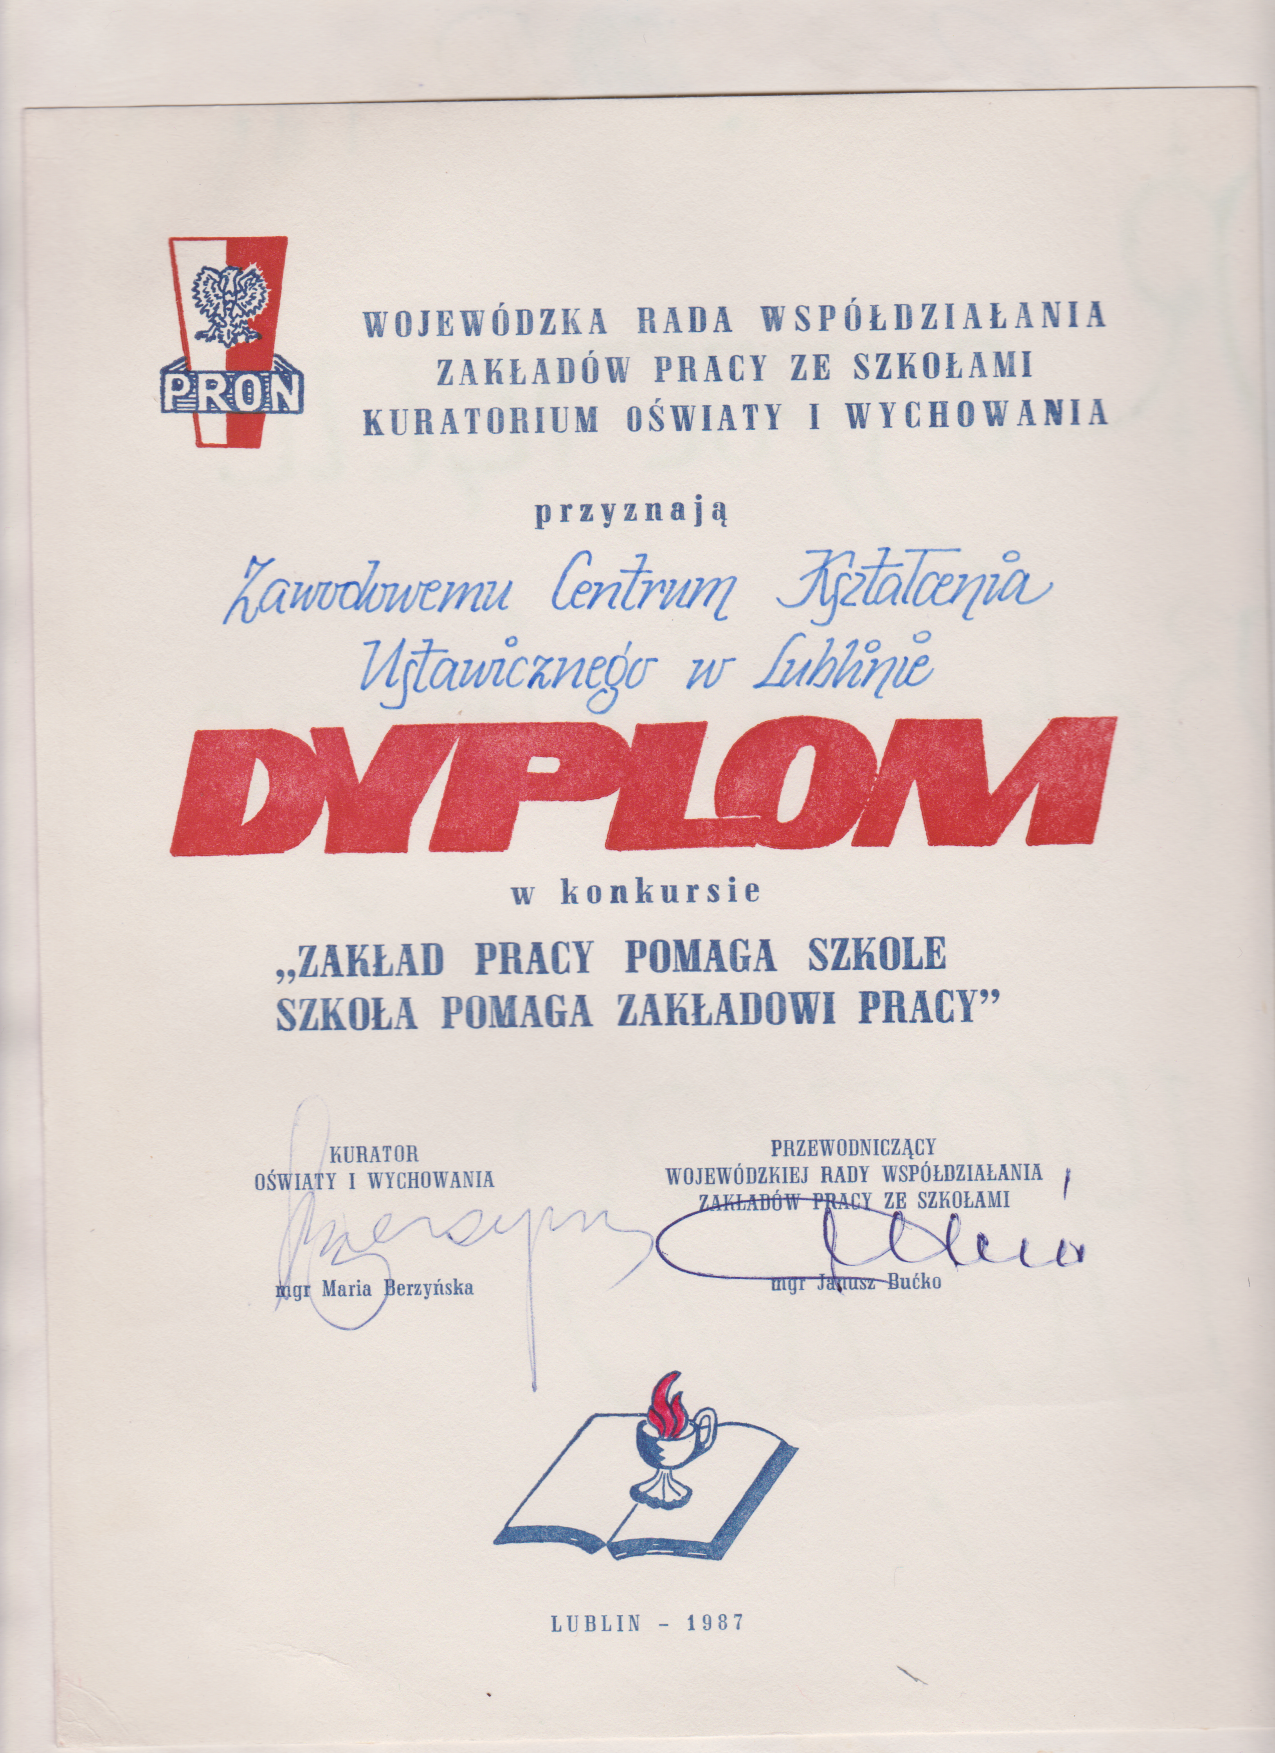 PRON
WOJEWÓDZKA RADA WSPÓŁDZIAŁANIA
ZAKŁADÓW PRACY ZE SZKOŁAMI
KURATORIUM OŚWIATY I WYCHOWANIA
przyznają
Zawodowemu Centrum Kształcenia
Ustawicznego w Lublinie
DYPLOM
w konkursie
„ZAKŁAD PRACY POMAGA SZKOLE
SZKOŁA POMAGA ZAKŁADOWI PRACY”
KURATOR
OŚWIATY I WYCHOWANIA
mgr Maria Berzyńska
PRZEWODNICZĄCY
WOJEWÓDZKIEJ RADY WSPÓŁDZIAŁANIA
ZAKŁADÓW PRACY ZE SZKOŁAMI
mgr Janusz Bućko
LUBLIN – 1987